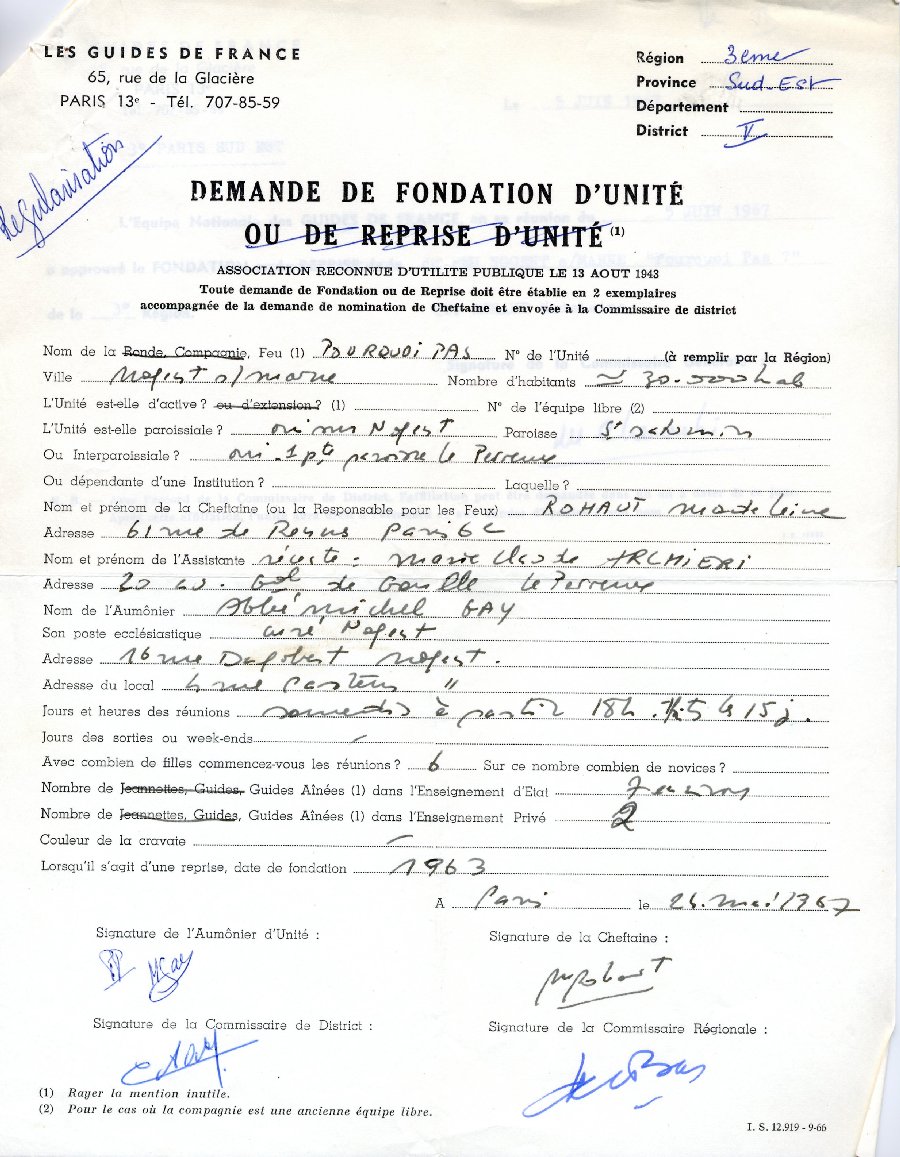 LES GUIDES DE FRANCE
65, rue de la Glacière
PARIS 13e - Tél. 707-85-59
Région 3eme
Province Sud-Est
Département
District V
Regularisation
DEMANDE DE FONDATION D'UNITÉ
OU DE REPRISE D'UNITÉ (1)
ASSOCIATION RECONNUE D'UTILITE PUBLIQUE LE 13 AOUT 1943
Toute demande de Fondation ou de Reprise doit être établie en 2 exemplaires
accompagnée de la demande de nomination de Cheftaine et envoyée à la Commissaire de district
Nom de la Ronde, Compagnie, Feu (1) POURQUOI PAS N° de l'Unité (à remplir par la Région)
Ville Nogent s/ marne Nombre d'habitants ≃ 30.000 hab
L'Unité est-elle d'active ? ou d'extension ? (1) N° de l'équipe libre (2)
L'Unité est-elle paroissiale ? oui sur Nogent Paroisse St Saturnin
Ou Interparoissiale ? oui 1 pte paroisse le Perreux
Ou dépendante d'une Institution ? Laquelle ?
Nom et prénom de la Cheftaine (ou la Responsable pour les Feux) ROHAUT Madeleine
Adresse 61 rue de Rennes Paris 6e
Nom et prénom de l'Assistante Marie Claude ARCHIERI
Adresse 20 av. Gal de Gaulle le Perreux
Nom de l'Aumônier Abbé Michel GAY
Son poste ecclésiastique curé Nogent
Adresse 16 rue Dagobert Nogent.
Adresse du local 4 rue Pasteur "
Jours et heures des réunions samedis à partir 18h. ts les 15 j.
Jours des sorties ou week-ends -
Avec combien de filles commencez-vous les réunions ? 6 Sur ce nombre combien de novices ?
Nombre de Jeannettes, Guides, Guides Aînées (1) dans l'Enseignement d'Etat
Nombre de Jeannettes, Guides, Guides Aînées (1) dans l'Enseignement Privé 2
Couleur de la cravate -
Lorsqu'il s'agit d'une reprise, date de fondation 1963
A Paris le 26. mai 1967
Signature de l'Aumônier d'Unité :
Signature de la Cheftaine :
MGay
Signature de la Commissaire de District :
Signature de la Commissaire Régionale :
(1) Rayer la mention inutile.
(2) Pour le cas où la compagnie est une ancienne équipe libre.
I. S. 12.919 - 9-66